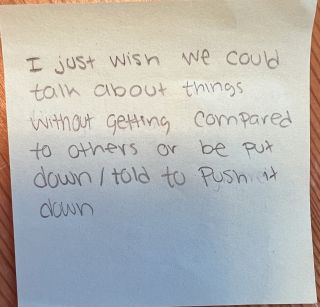 I just wish we could
talk about things
without getting compared
to others or be put
down/told to push it
down